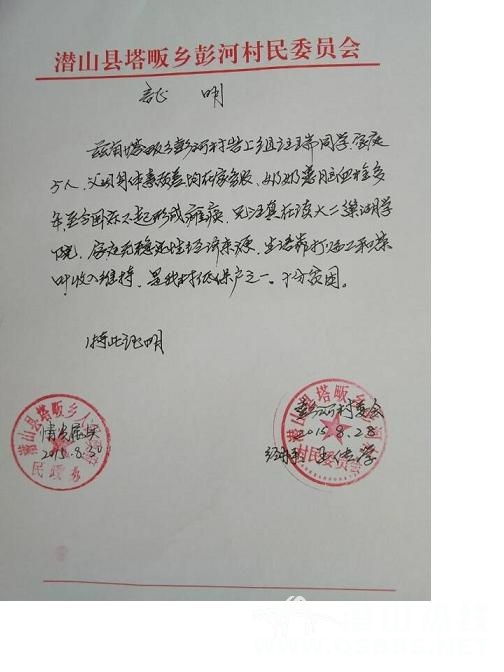 潜山县塔畈乡彭河村民委员会
证 明
兹有塔畈乡彭河村岩上组汪瑞同学,家庭
5人,父母身体素质差均在家务农,奶奶患脑血栓多
年至今因床不起形成瘫痪,兄汪真在读大二巢湖学
院,家庭无稳定性经济来源,生活靠打临工和茶
叶收入维持,是我村低保户之一。十分贫困。
特此证明
情况属实
2015.8.30
潜山县塔畈乡人
民政
彭河村委会
2015.8.28
潜山县塔畈乡
村民委员会